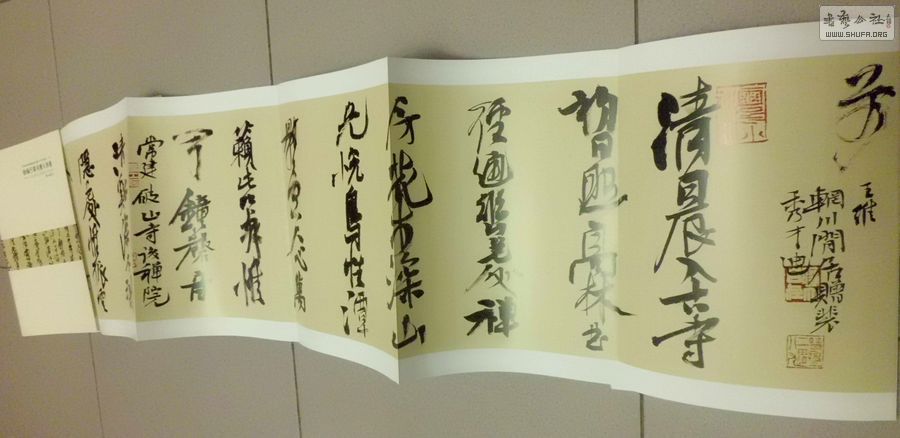 書藝公社
WWW.SHUFA.ORG
芳
王維
輞川閒居贈裴
秀才迪
清晨入古寺
初日照高林曲
徑通幽處禪
房花木深山
光悅鳥性潭
影空人心萬
籟此俱寂惟
聞鐘磬音
常建破山寺後禪院
隱處唯孤雲